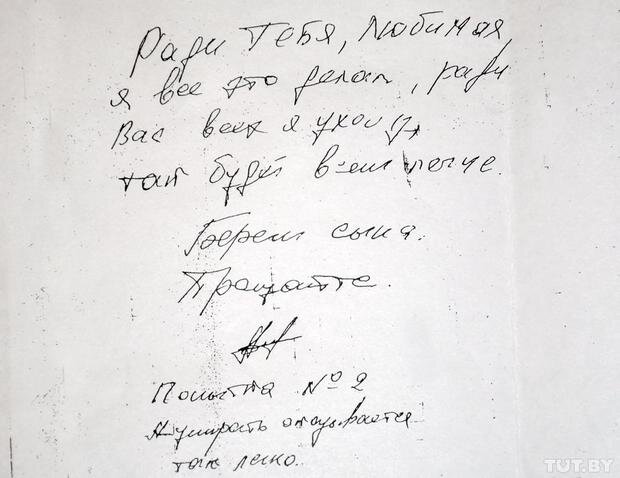 Ради Тебя, Любимая,
я все это делал, ради
Вас всех я ухожу,
так будет всем легче.
Береги сына.
Прощайте.
Попытка № 2
А умирать оказывается
так легко.
TUT.BY